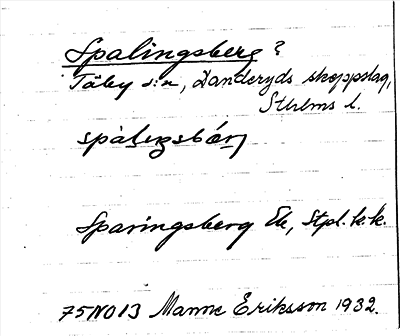 Spalingsberg ?
Täby s:n, Danderyds skeppslag,
Sthlms l.
spàlıŋsbærj
Sparingsberg Ek, Stpl. k.k.
75NO13 Manne Eriksson 1932.